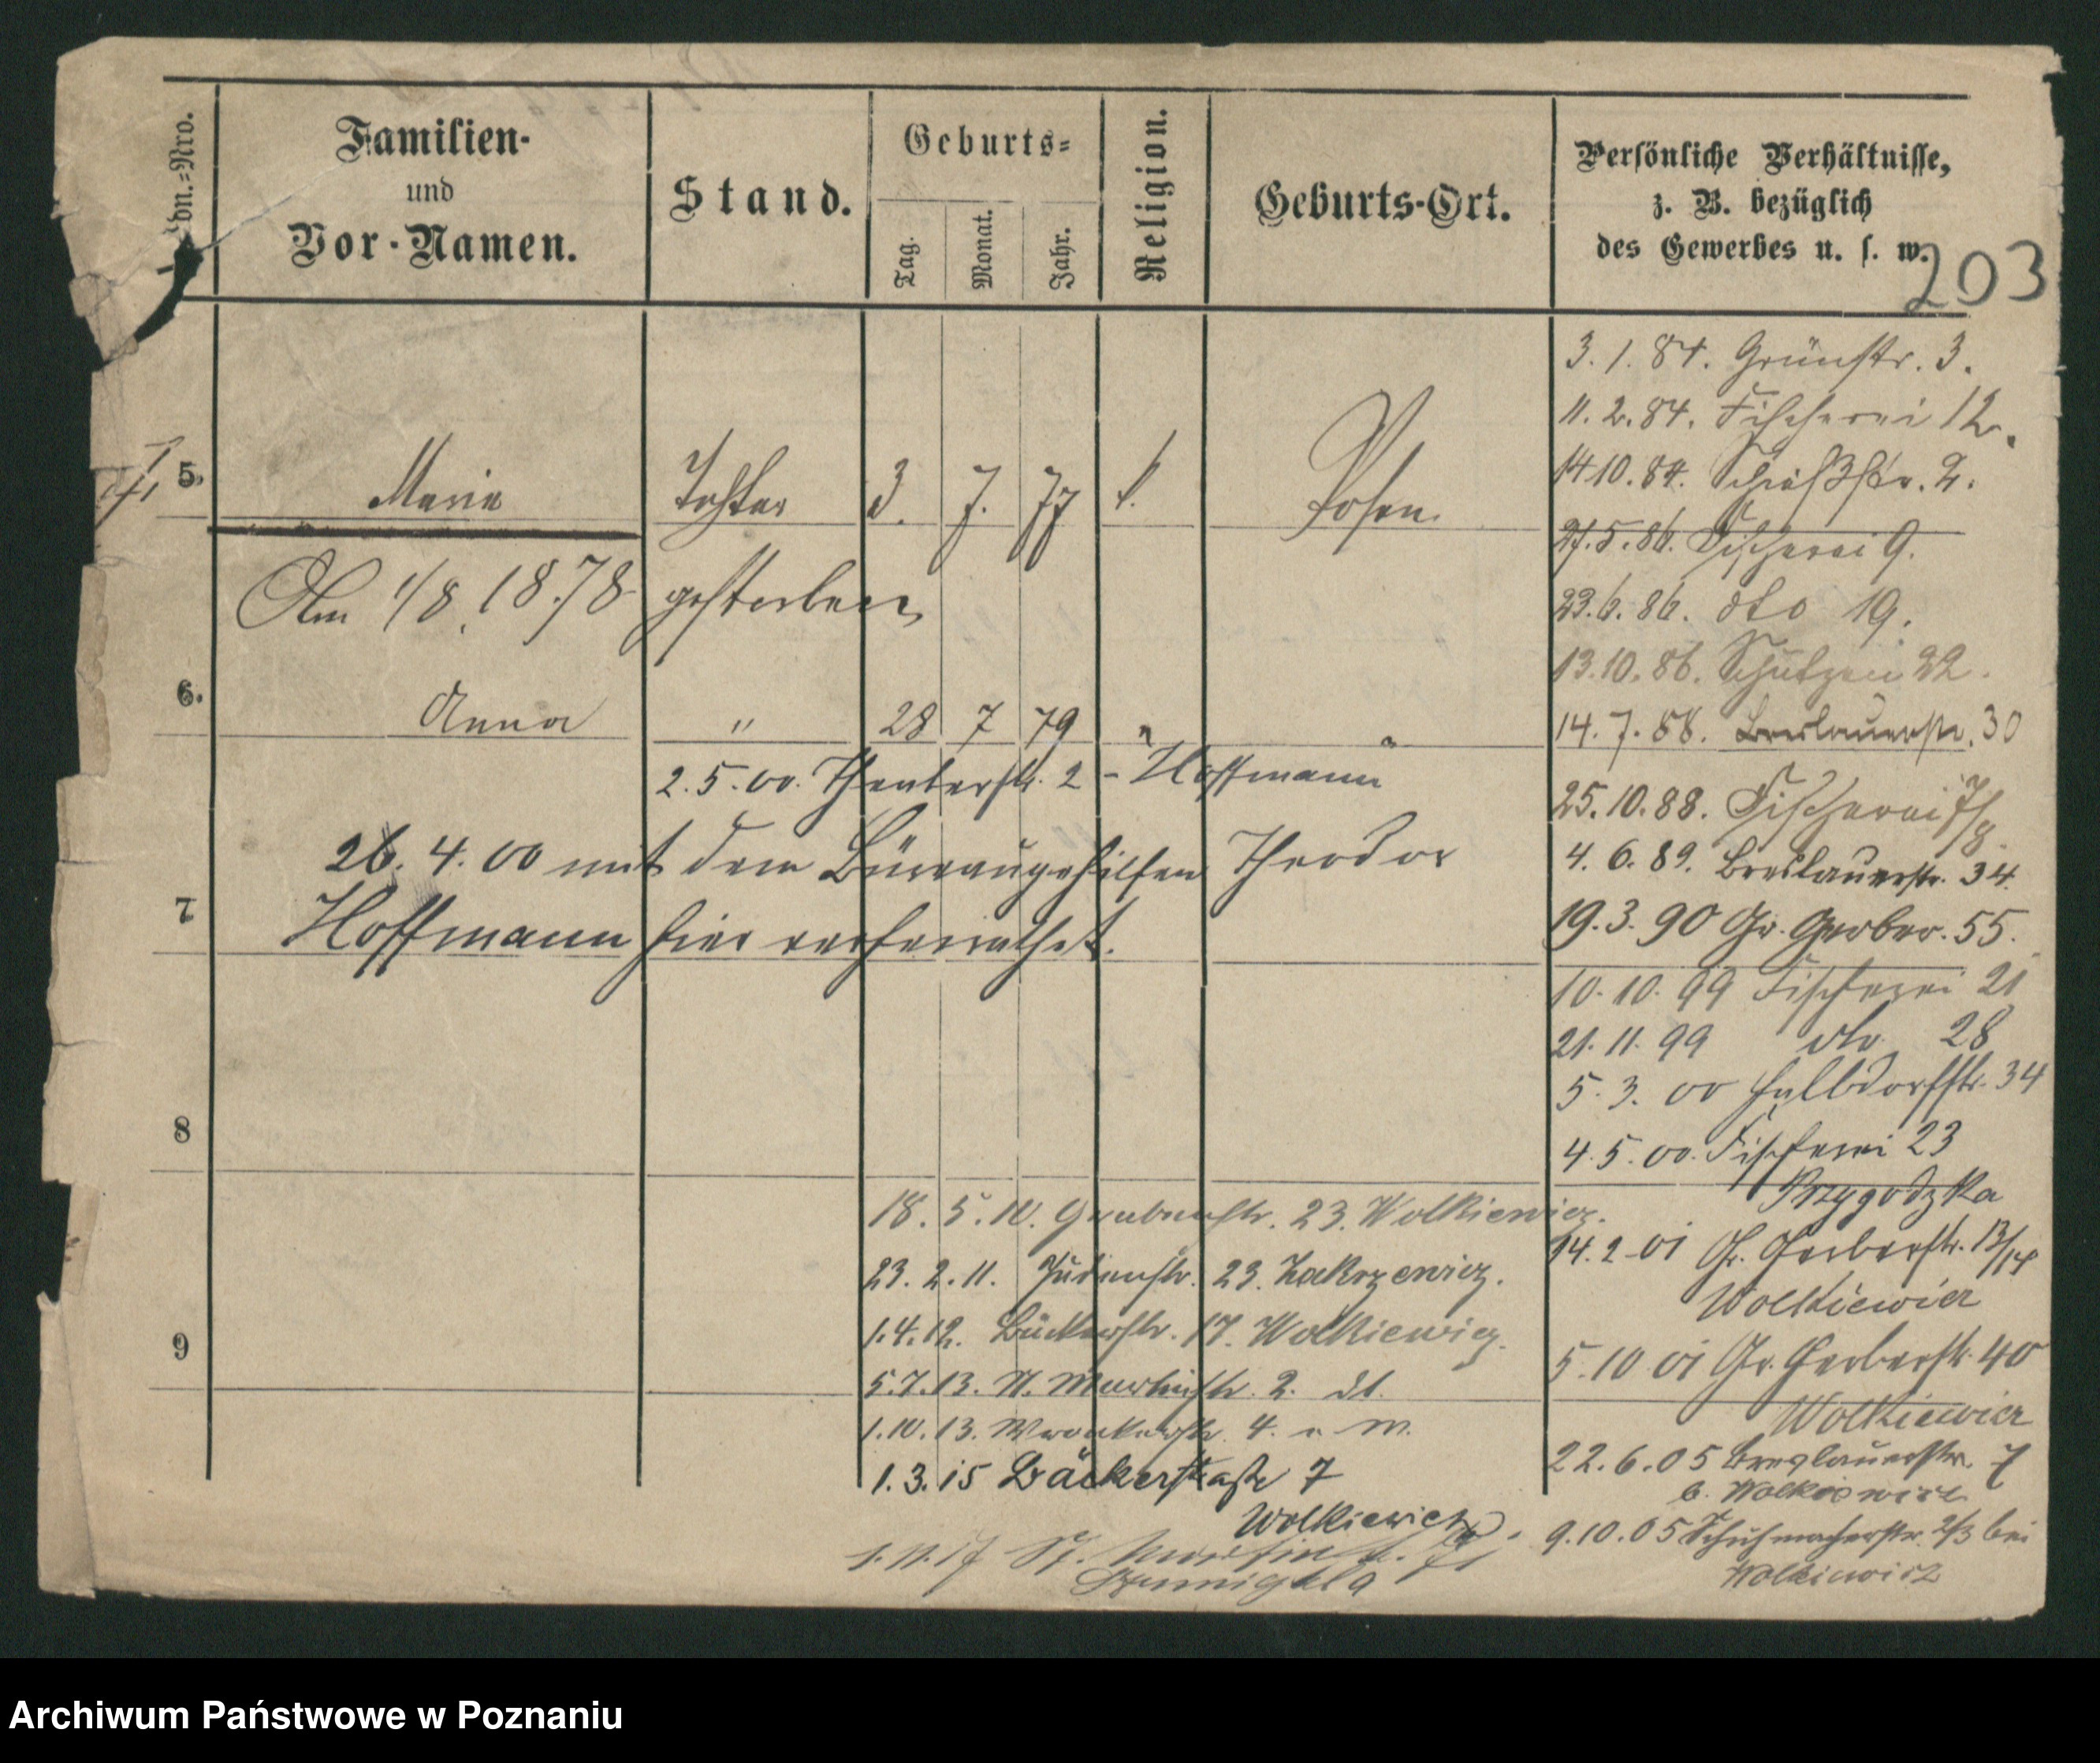 Lfdn.-Nro.
Familien-
und
Vor-Namen.
Stand.
Geburts-
Tag.
Monat.
Jahr.
Religion.
Geburts-Ort.
Persönliche Verhältnisse,
z. B. bezüglich
des Gewerbes u. s. w.
203
5. Marie Tochter 3. 7. 77 k. Posen
Am 1/8. 1878 gestorben
6. Anna " 28 7 79 " "
2.5.00. Theaterstr. 2 - Hoffmann
26. 4. 00 mit dem Büreaugehilfen Theodor
7
Hoffmann hier verheirathet.
8
9
3. 1. 84. Grünstr. 3.
11. 2. 84. Fischerei 12.
14 10. 84. Schießstr. 2.
27. 5. 86. Fischerei 9.
23. 6. 86. dto 19.
13. 10. 86. Schützen 22.
14. 7. 88. Breslauerstr. 30
25. 10. 88. Fischerei 7/8.
4. 6. 89. Breslauerstr. 34.
19. 3. 90 Gr. Gerber. 55.
10. 10. 99 Fischerei 21
21. 11. 99 dto 28
5. 3. 00 Halbdorfstr. 34
4. 5. 00. Fischerei 23
Przygodzka
14. 2. 01 Gr. Gerberstr. 13/14
Wolkiewicz
5. 10 01 Gr. Gerberstr. 40
Wolkiewicz
22. 6. 05 Breslauerstr. 7
b. Wolkiewicz
9. 10. 05 Schuhmacherstr. 2/3 bei
Wolkiewicz
18. 5. 10. Grabenstr. 23. Wolkiewicz.
23. 2. 11. Judenstr. 23. Zakrzewicz.
1. 4. 12. Bäckerstr. 17. Wolkiewicz.
5. 7. 13. St. Martinstr. 2. dt.
1. 10. 13. Wronkerstr. 4. " W.
1. 3. 15 Bäckerstraße 7
Wolkiewicz
1. 11. 17 St. Martinstr.
Archiwum Państwowe w Poznaniu